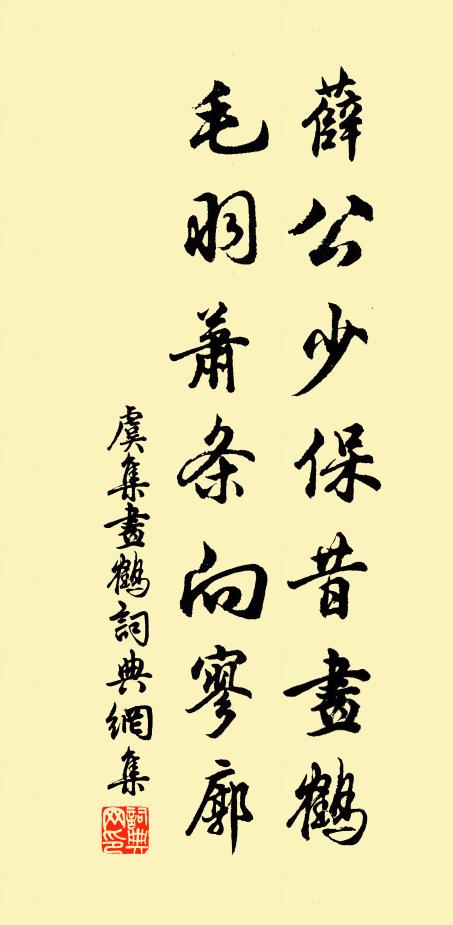 薛公少保昔畫鶴
毛羽蕭条向寥廓
虞集畫鶴詞典網集
詞典網印